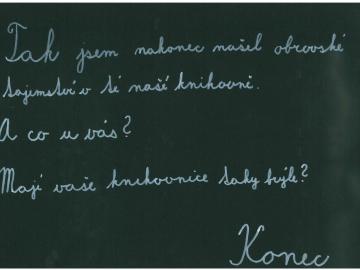 Tak jsem nakonec našel obrovské
tajemství v té naší knihovně.
A co u vás?
Mají vaše knihovnice taky brýle?
Konec